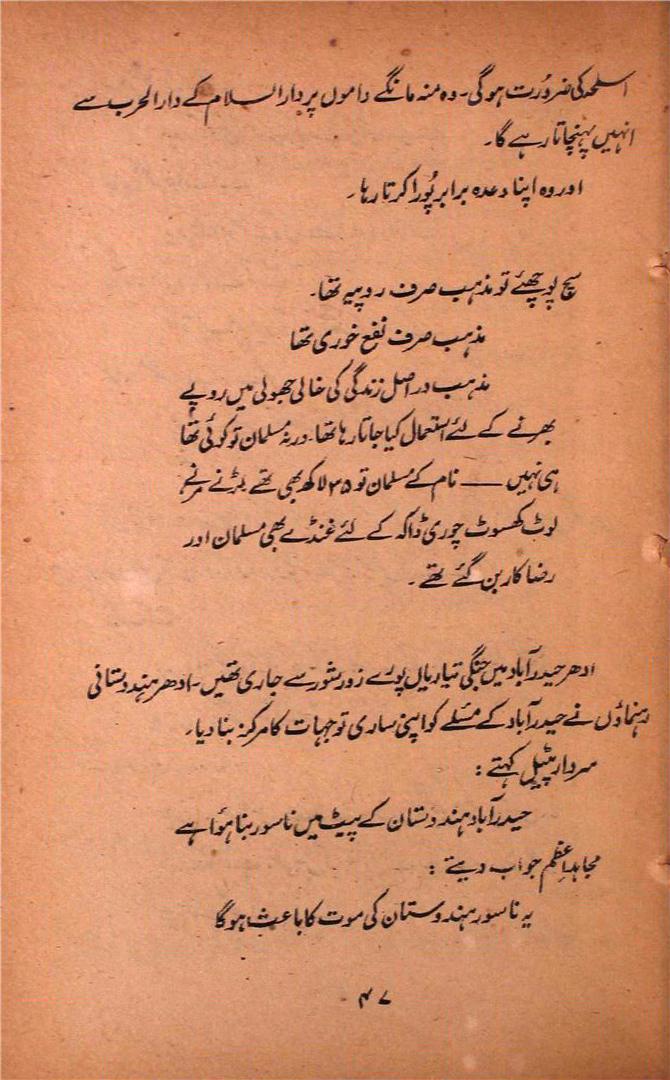 اسلحہ کی ضرورت ہوگی۔ وہ منہ مانگے داموں پر دارالسلام کے دارالحرب سے
انہیں پہنچاتا رہے گا۔
اور وہ اپنا وعدہ برابر پُورا کرتا رہا۔
سچ پوچھئے تو مذہب صرف روپیہ تھا۔
مذہب صرف نفع خوری تھا
مذہب دراصل زندگی کی خالی جھولی میں روپے
بھرنے کے لئے استعمال کیا جاتا رہا تھا۔ ورنہ مسلمان تو کوئی تھا
ہی نہیں —— نام کے مسلمان تو ۳۵ لاکھ بھی تھے لڑنے مرنے
لوٹ کھسوٹ چوری ڈاکہ کے لئے غنڈے بھی مسلمان اور
رضا کار بن گئے تھے۔
ادھر حیدرآباد میں جنگی تیاریاں پورے زور شور سے جاری تھیں۔ ادھر ہندوستانی
رہنماؤں نے حیدرآباد کے مسئلے کو اپنی ساری توجہات کا مرکز بنا دیا۔
سردار پٹیل کہتے :
حیدرآباد ہندوستان کے پیٹ میں ناسور بنا ہوُا ہے
مجاہدِاعظم جواب دیتے :
یہ ناسور ہندوستان کی موت کا باعث ہوگا
۴۷